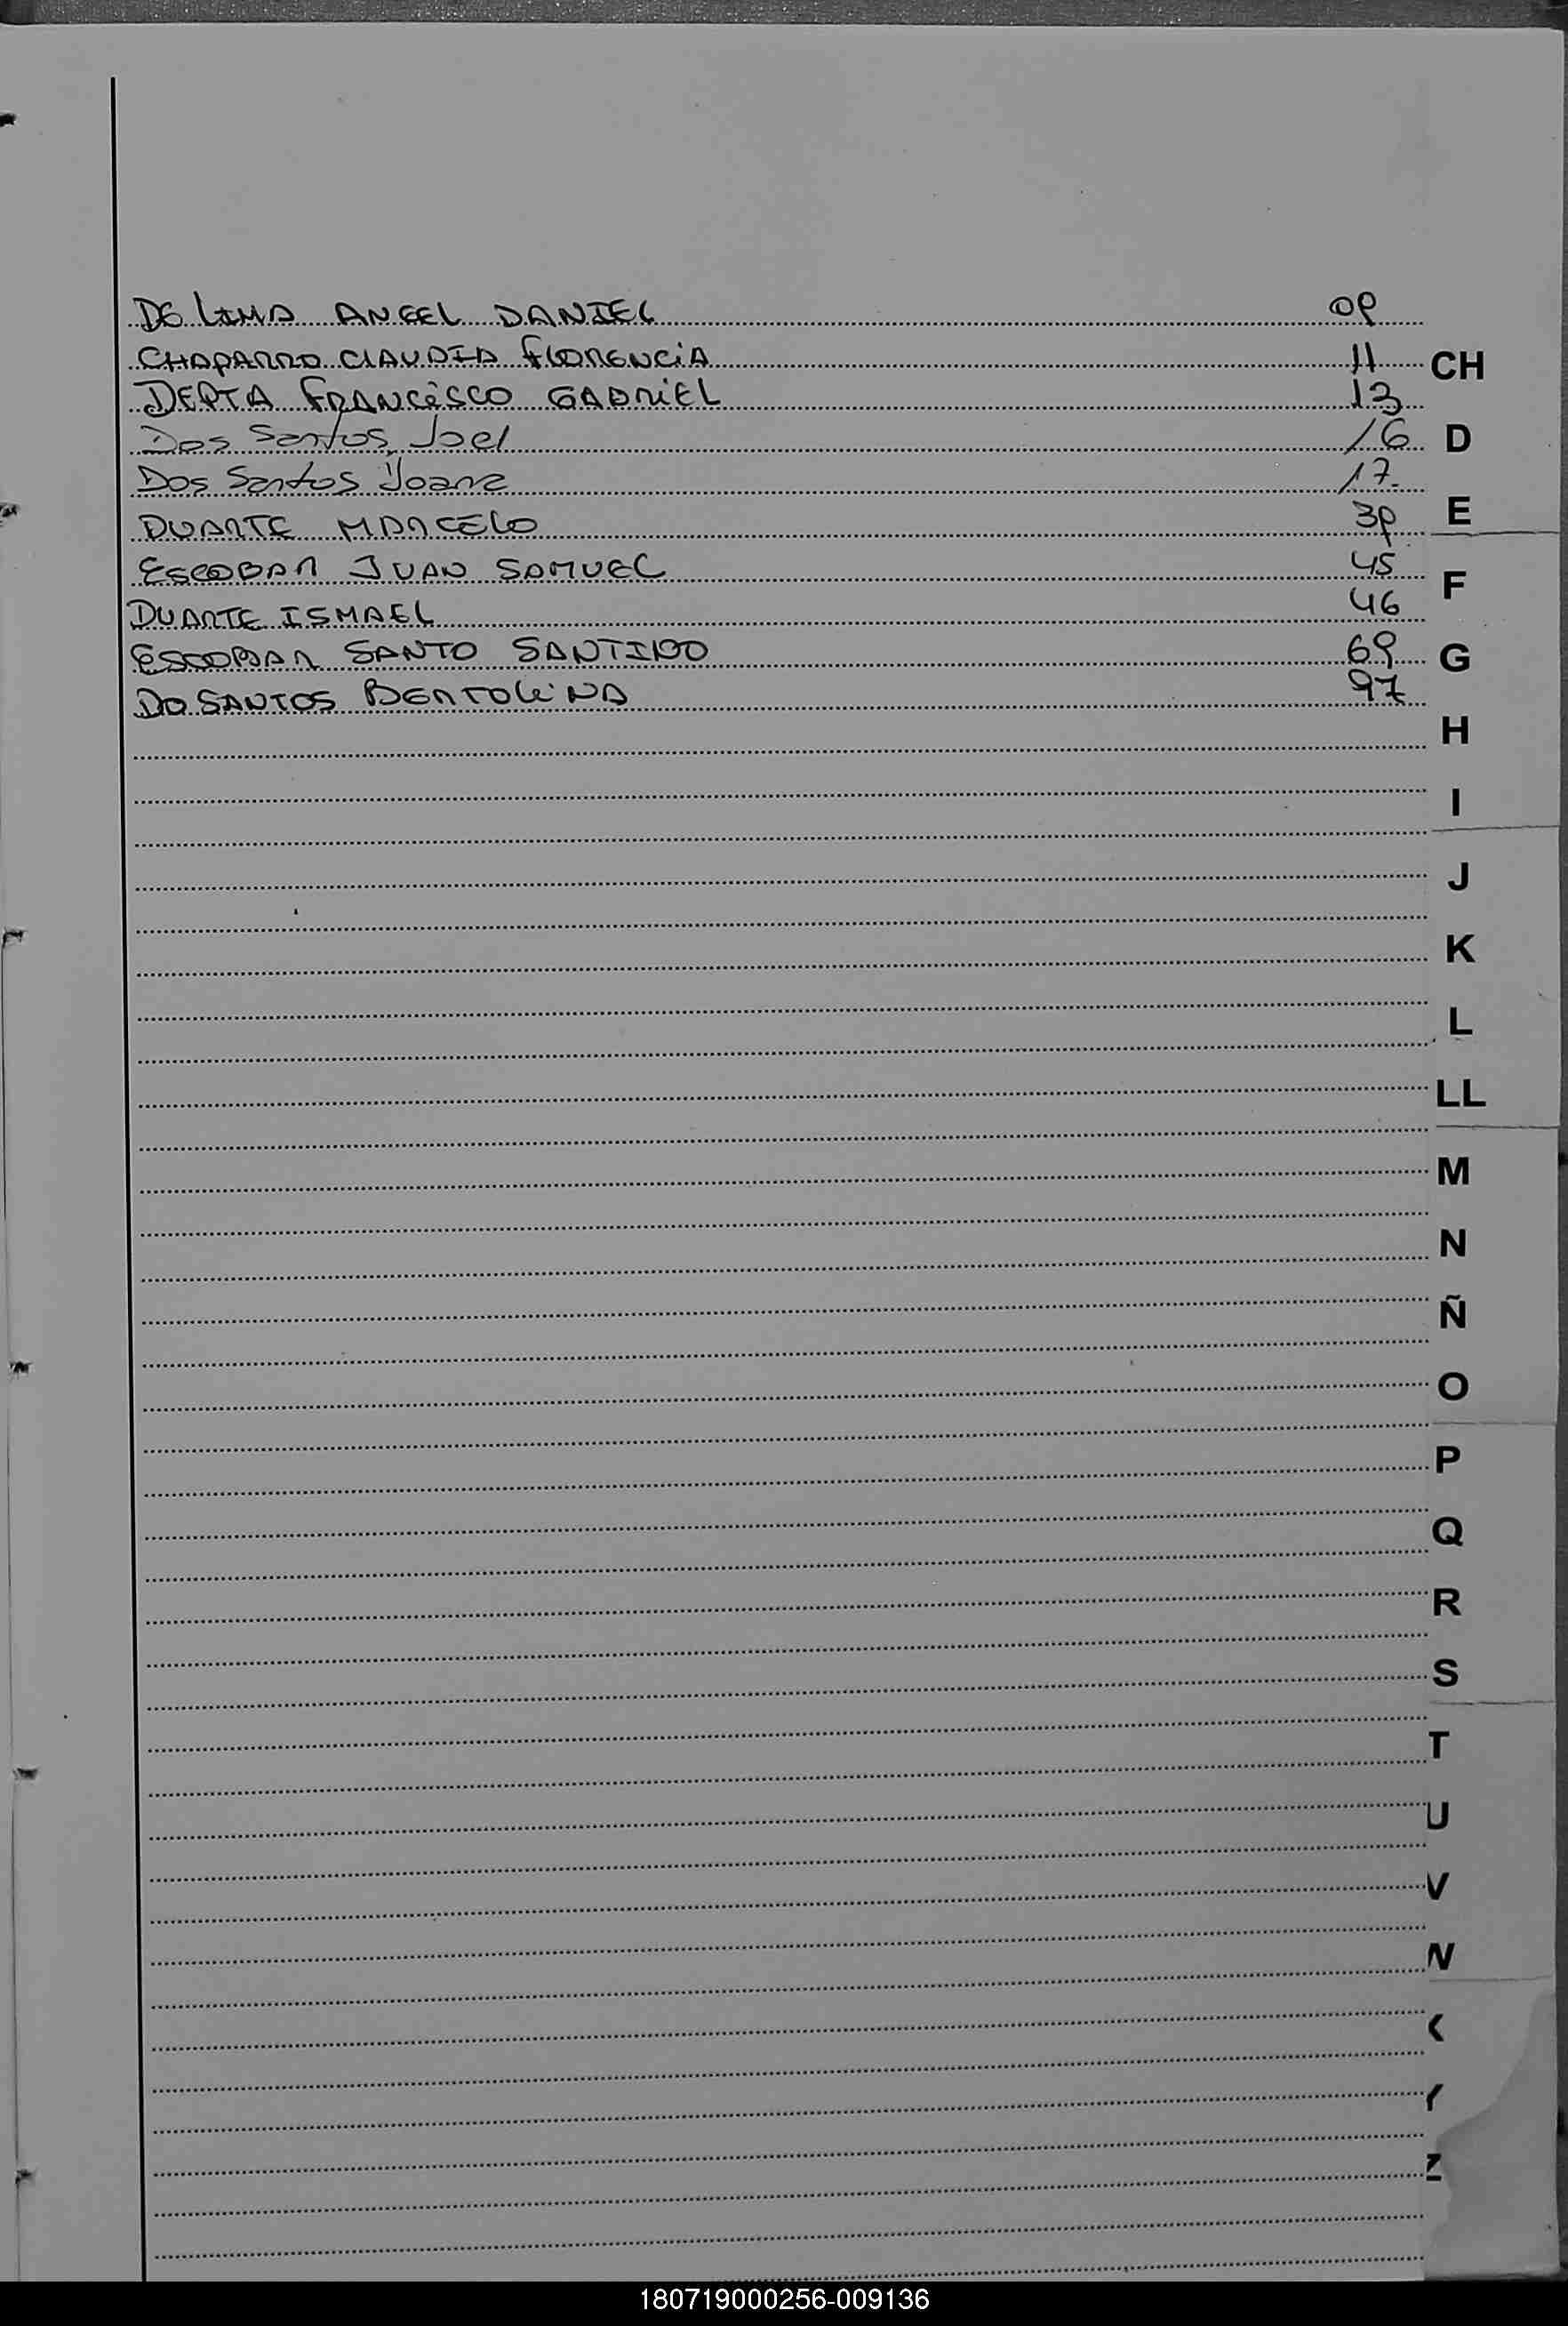 DE LIMA ANGEL DANIEL 09
CHAPARRO CLAUDIA FLORENCIA 11
CH
DEPTA FRANCISCO GABRIEL 13
Dos Santos, Joel 16
D
Dos Santos Yoana 17
DUARTE MARCELO 39
E
ESCOBAR JUAN SAMUEL 45
F
DUARTE ISMAEL 46
ESCOBAR SANTO SANTINO 69
G
DO SANTOS BERTOLINA 97
H
I
J
K
L
LL
M
N
Ñ
O
P
Q
R
S
T
U
V
W
X
Y
Z
180719000256-009136